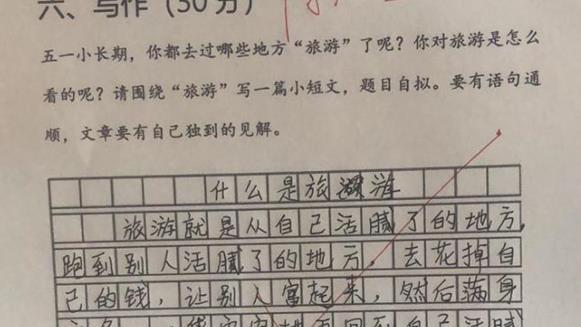 六、写作（30分）
五一小长期，你都去过哪些地方“旅游”了呢？你对旅游是怎么
看的呢？请围绕“旅游”写一篇小短文，题目自拟。要有语句通
顺，文章要有自己独到的见解。
什么是旅游
旅游就是从自己活腻了的地方，
跑到别人活腻了的地方，去花掉自
己的钱，让别人富起来，然后满身
地再回到自己活腻